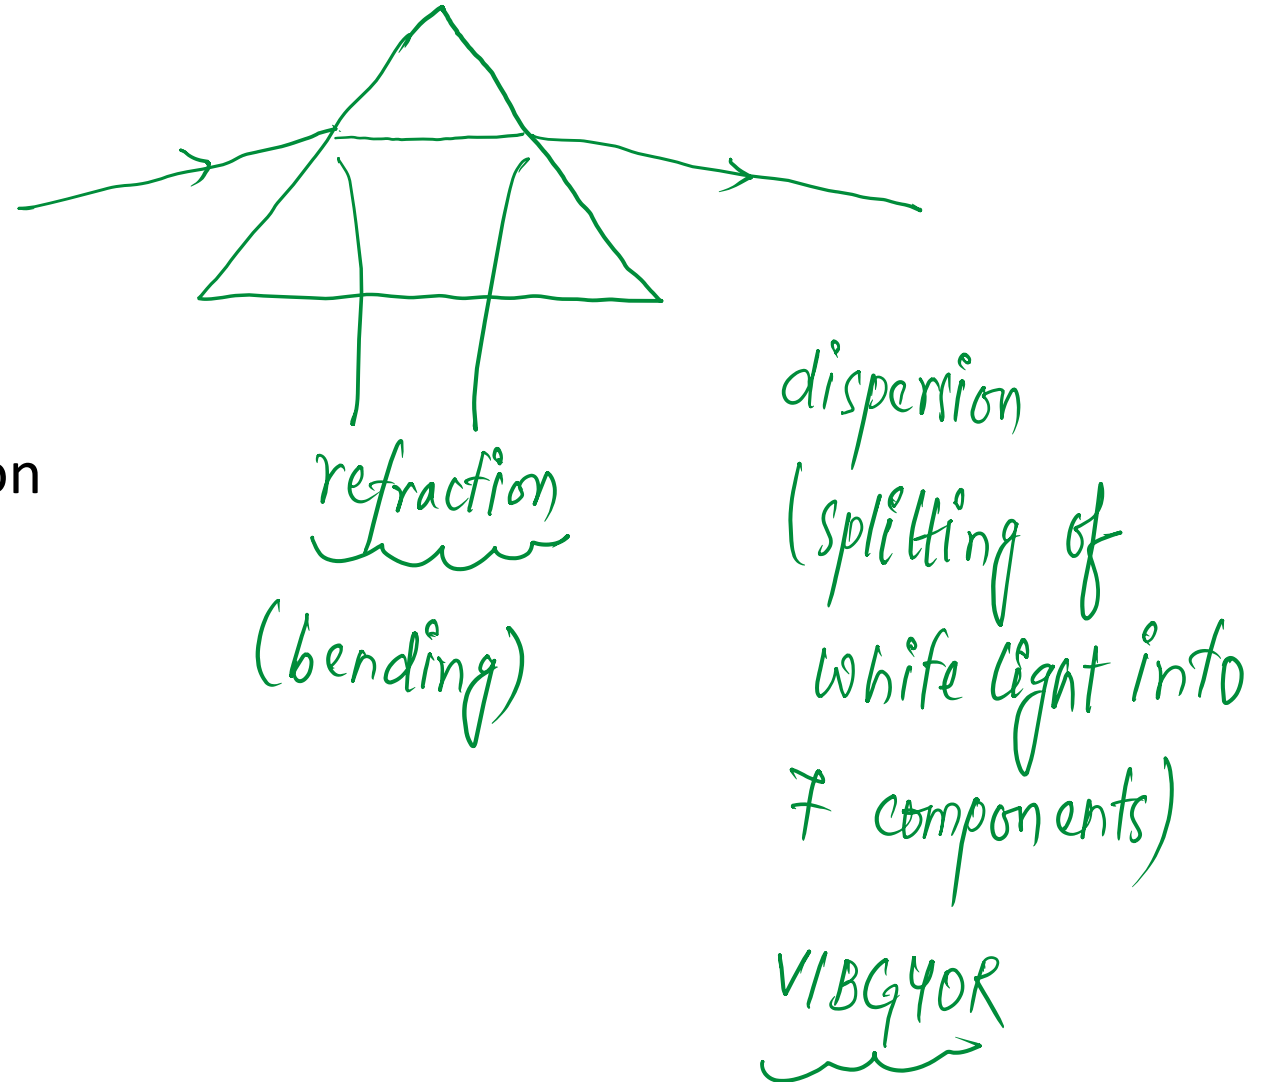 on
refraction
(bending)
dispersion
(splitting of
white light into
7 components)
VIBGYOR